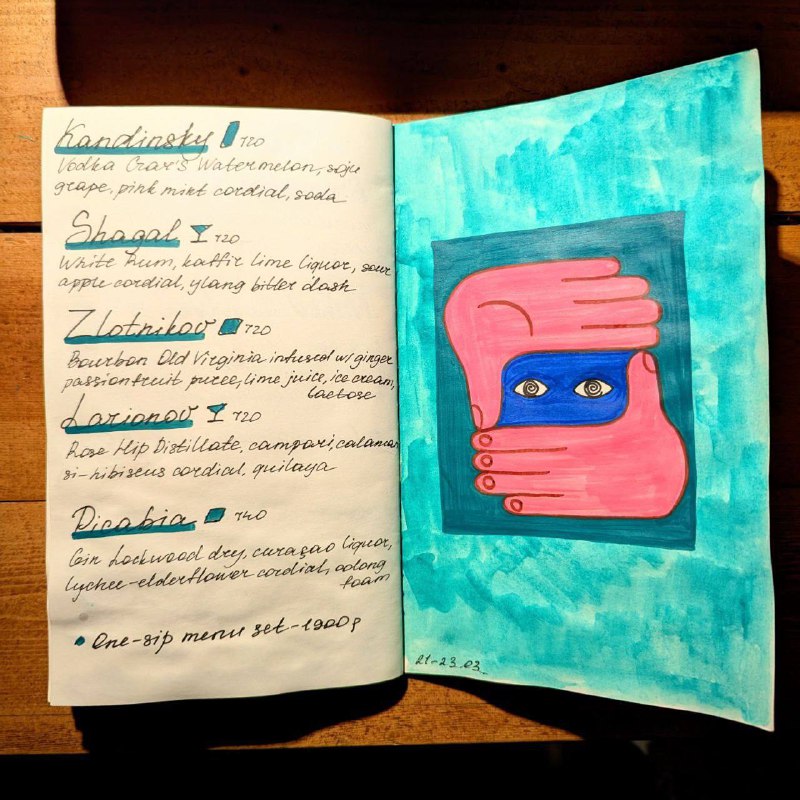 Kandinsky 720
Vodka Czar's Watermelon, soju
grape, pink mint cordial, soda
Shagal 720
White Rum, kaffir lime liquor, sour
apple cordial, ylang bitter dash
Zlotnikov 720
Bourbon Old Virginia infused w/ ginger
passionfruit puree, lime juice, ice cream,
lactose
Larionov 720
Rose Hip Distillate, campari, calaman
si-hibiscus cordial, quilaya
Picabia 740
Gin Lockwood dry, curaçao liquor,
lychee-elderflower cordial, oolong
foam
• One-sip menu set-1900
21-23.03.